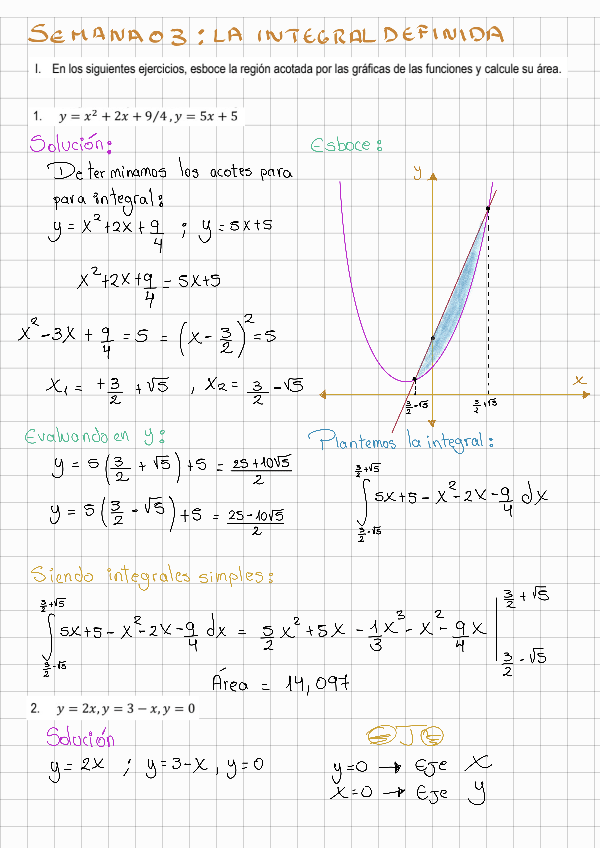 SEMANA 03: LA INTEGRAL DEFINIDA
I. En los siguientes ejercicios, esboce la región acotada por las gráficas de las funciones y calcule su área.
1. y = x² + 2x + 9/4 , y = 5x + 5
Solución:
Esboce:
Determinamos los acotes para
para integral:
y = x² + 2x + 9/4 ; y = 5x + 5
x² + 2x + 9/4 = 5x + 5
x² - 3x + 9/4 = 5 = (x - 3/2)² = 5
x₁ = +3/2 + √5 , x₂ = 3/2 - √5
y
x
3/2 - √5
3/2 + √5
Evaluando en y:
y = 5(3/2 + √5) + 5 = (25 + 10√5)/2
y = 5(3/2 - √5) + 5 = (25 - 10√5)/2
Plantemos la integral:
∫_{3/2 - √5}^{3/2 + √5} 5x + 5 - x² - 2x - 9/4 dx
Siendo integrales simples:
∫_{3/2 - √5}^{3/2 + √5} 5x + 5 - x² - 2x - 9/4 dx = 5/2 x² + 5x - 1/3 x³ - x² - 9/4 x |_{3/2 - √5}^{3/2 + √5}
Área = 14,097
2. y = 2x, y = 3 − x, y = 0
Solución
EJE
y = 2x ; y = 3 - x , y = 0
y = 0 → Eje x
x = 0 → Eje y